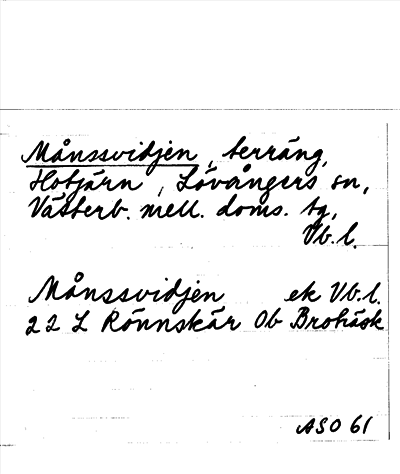 Månssvidjen, terräng,
Hotjärn, Lövångers sn,
Västerb. mell. doms. tg,
Vb. l.
Månssvidjen ek Vb. l.
22 L Rönnskär Ob Brohäsk
ASO 61